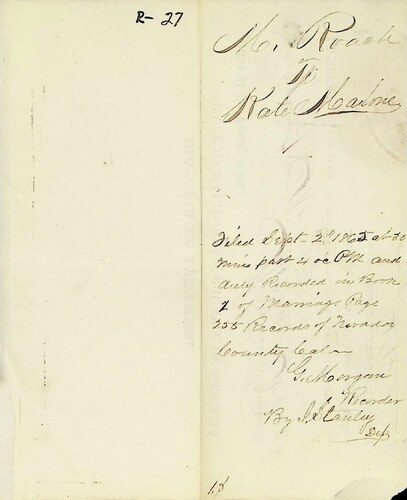 R-27
M. Roach
To
Kate Malone
Filed Sept 2d 1865 at 30
mins past 4 oc PM and
duly Recorded in Book
2 of Marriage Page
255 Records of Nevada
County Cal
G. Morgan
Recorder
By J. Stanley
Dep